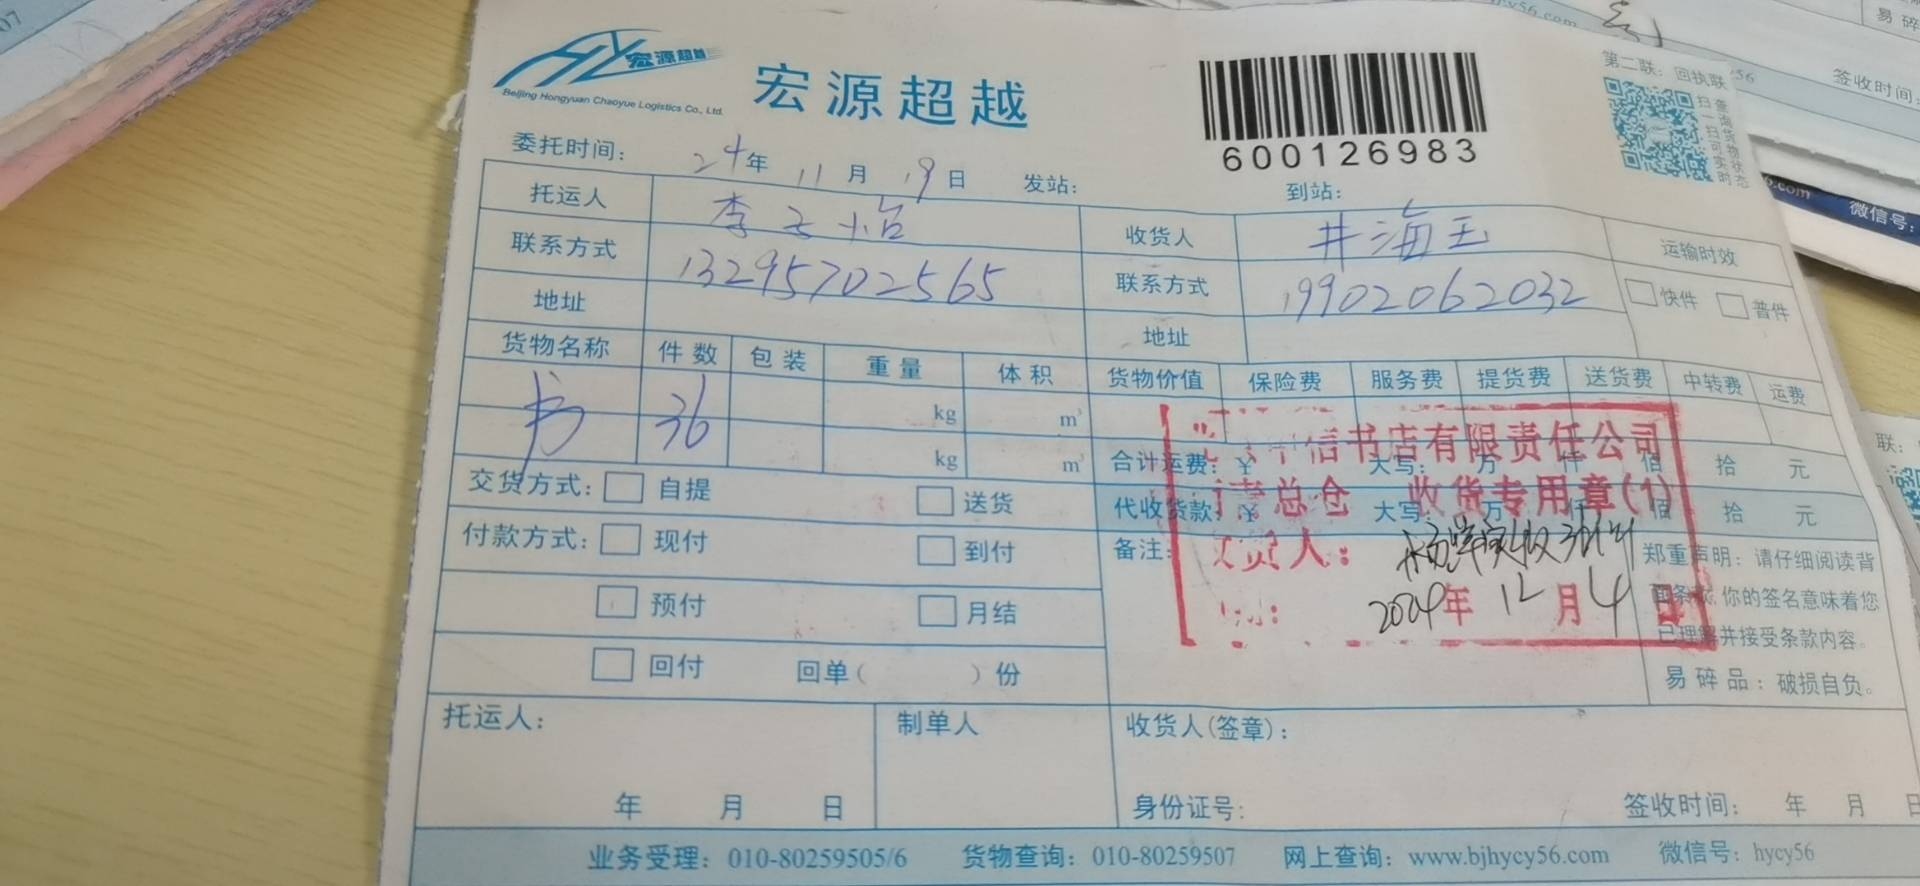 宏源超越
Beijing Hongyuan Chaoyue Logistics Co., Ltd.
宏源超越
600126983
第二联：回执联
扫一扫可实时
查询货物状态
委托时间： 24年 11月 19日 发站： 到站：
托运人 李子怡 收货人 井海玉 运输时效
联系方式 13295702565 联系方式 19902062032 快件 普件
地址 地址
货物名称 件数 包装 重量 体积 货物价值 保险费 服务费 提货费 送货费 中转费 运费
书 36 kg m³
kg m³ 合计运费：¥ 大写： 万 仟 佰 拾 元
交货方式： 自提 送货 代收货款：¥ 大写： 万 仟 佰 拾 元
付款方式： 现付 到付 备注：
预付 月结
回付 回单（ ）份
信书店有限责任公司
总仓 收货专用章(1)
货人： 实收36件
2024年 12月 4日
郑重声明：请仔细阅读背
面条款，你的签名意味着您
已理解并接受条款内容。
易碎品：破损自负。
托运人： 制单人 收货人(签章)：
年 月 日 身份证号： 签收时间： 年 月 日
业务受理：010-80259505/6 货物查询：010-80259507 网上查询：www.bjhycy56.com 微信号：hycy56
易碎
签收时间：
微信号：